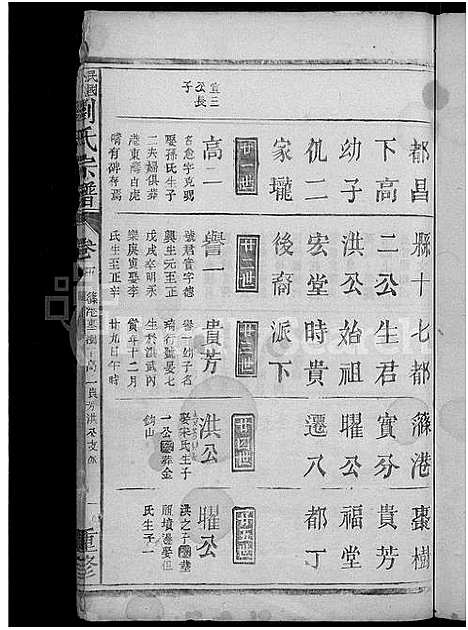 都昌縣十七都篠港棗樹
下高二公生君實芬貴芳
幼子洪公始祖曜公福堂
仉一宏堂時貴遷八都丁
家壠後裔派下
廿一世
廿二世
廿三世
廿四世
廿五世
宜三
公長
子
高二
名愈字克弼
娶孫氏生子
二夫婦俱葬
港東灣白虎
嘴有碑存焉
譽一
號君實字德
興生元至正
戊戌卒明永
樂庚寅娶李
氏生至正辛
貴芳
譽一幼子名
瑞行號晏七
生於洪武丙
寅年十二月
廿九日午時
洪公
娶宋氏生子
一公葬金
鈎山
曜公
洪之子
祖墳邊娶但
氏生子一
民國
劉氏宗譜
卷
重修